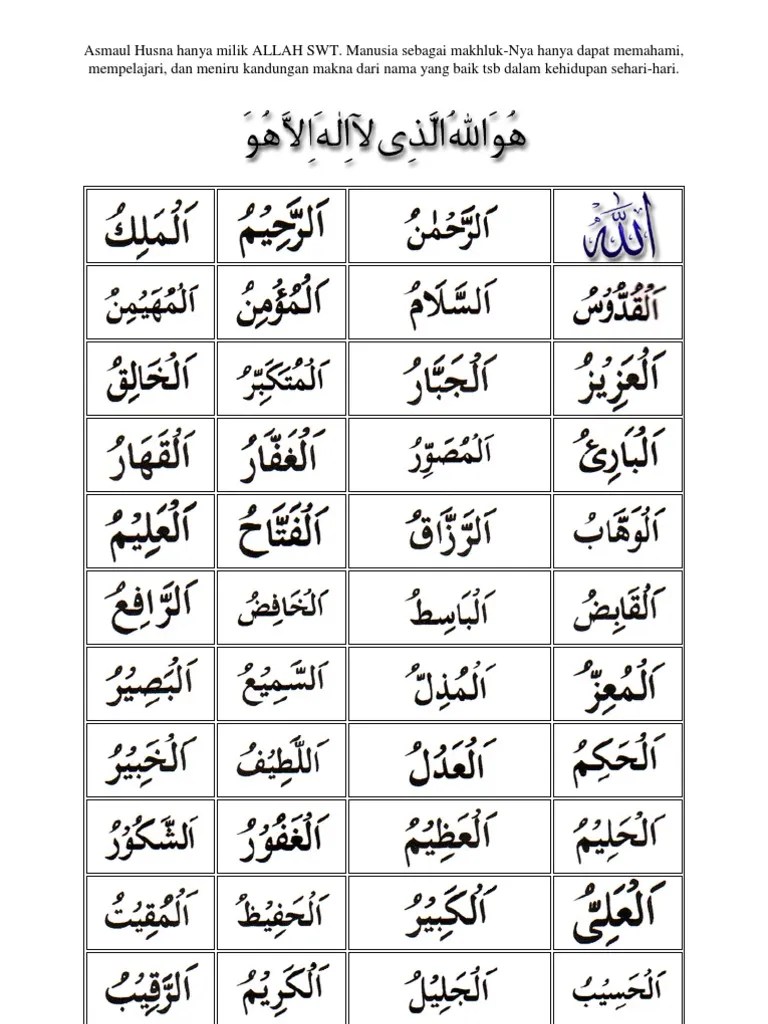 Asmaul Husna hanya milik ALLAH SWT. Manusia sebagai makhluk-Nya hanya dapat memahami,
mempelajari, dan meniru kandungan makna dari nama yang baik tsb dalam kehidupan sehari-hari.
هُوَاللهُ الَّذِى لَآاِلٰهَ اِلاَّهُوَ
اَللهُ اَلرَّحْمٰنُ اَلرَّحِيْمُ اَلْمَلِكُ
اَلْقُدُّوْسُ اَلسَّلَامُ اَلْمُؤْمِنُ اَلْمُهَيْمِنُ
اَلْعَزِيْزُ اَلْجَبَّارُ اَلْمُتَكَبِّرُ اَلْخَالِقُ
اَلْبَارِئُ اَلْمُصَوِّرُ اَلْغَفَّارُ اَلْقَهَارُ
اَلْوَهَّابُ اَلرَّزَّاقُ اَلْفَتَّاحُ اَلْعَلِيْمُ
اَلْقَابِضُ اَلْبَاسِطُ اَلْخَافِضُ اَلرَّافِعُ
اَلْمُعِزُّ اَلْمُذِلُّ اَلسَّمِيْعُ اَلْبَصِيْرُ
اَلْحَكِمُ اَلْعَدْلُ اَللَّطِيْفُ اَلْخَبِيْرُ
اَلْحَلِيْمُ اَلْعَظِيْمُ اَلْغَفُوْرُ اَلشَّكُوْرُ
اَلْعَلِىُّ اَلْكَبِيْرُ اَلْحَفِيْظُ اَلْمُقِيْتُ
اَلْحَسِيْبُ اَلْجَلِيْلُ اَلْكَرِيْمُ اَلرَّقِيْبُ